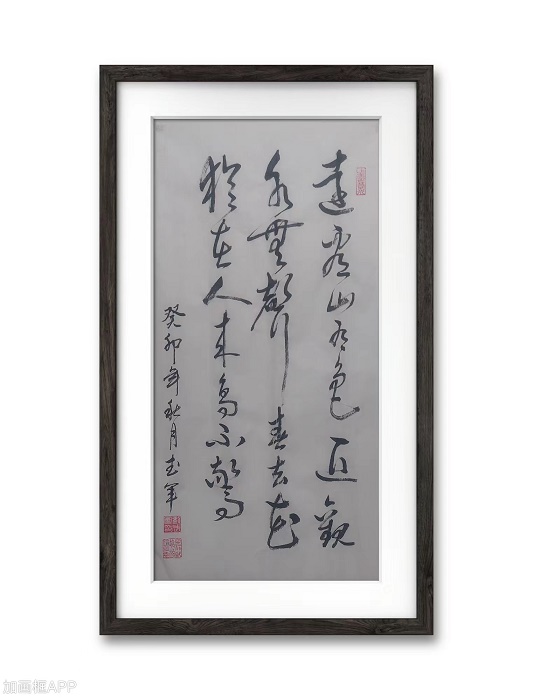 遠看山有色近觀
水無聲春去花
猶在人來鳥不驚
癸卯年秋月
加画框APP